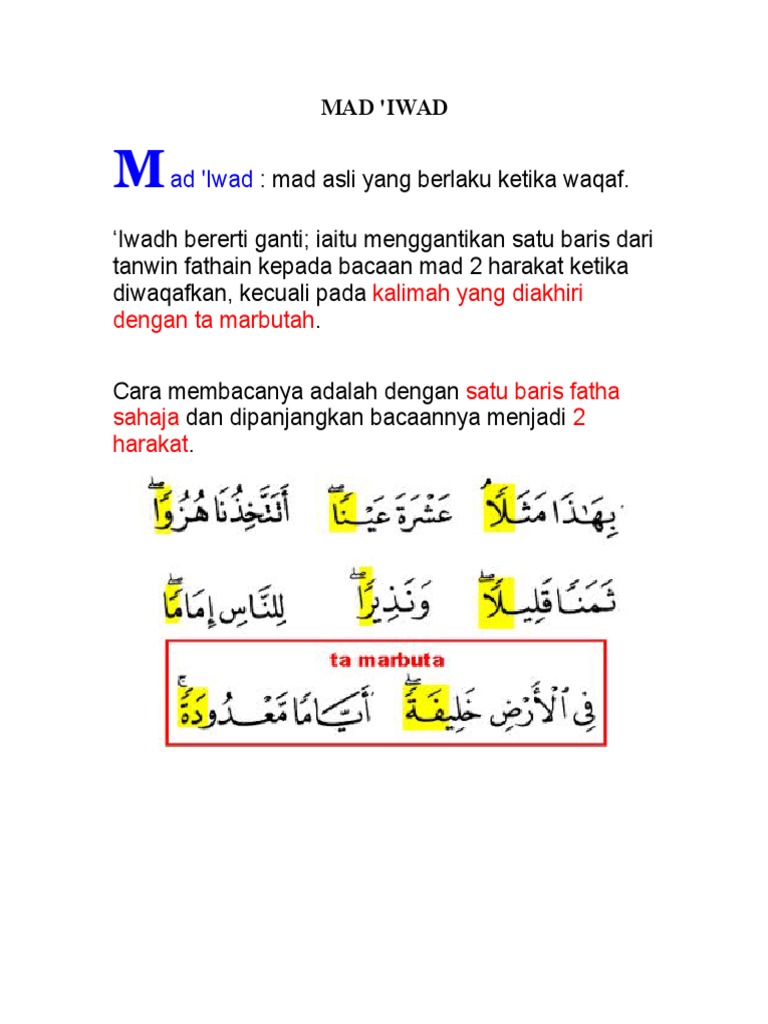 MAD 'IWAD
Mad 'Iwad : mad asli yang berlaku ketika waqaf.
‘Iwadh bererti ganti; iaitu menggantikan satu baris dari
tanwin fathain kepada bacaan mad 2 harakat ketika
diwaqafkan, kecuali pada kalimah yang diakhiri
dengan ta marbutah.
Cara membacanya adalah dengan satu baris fatha
sahaja dan dipanjangkan bacaannya menjadi 2
harakat.
بِهَٰذَا مَثَلًاۘ عَشْرَةَ عَيْنًاۖ أَتَتَّخِذُنَا هُزُوًاۖ
ثَمَنًا قَلِيلًاۖ وَنَذِيرًاۖ لِلنَّاسِ إِمَامًاۖ
ta marbuta
فِي ٱلْأَرْضِ خَلِيفَةًۖ أَيَّامًا مَّعْدُودَةًۚ